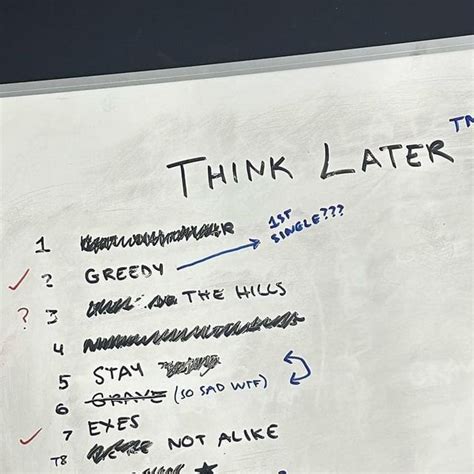 THINK LATER TM
1 R
1ST SINGLE???
✓ 2 GREEDY
? 3 THE HILLS
4
5 STAY
6 GRAVE (SO SAD WTF)
✓ 7 EXES
T8 NOT ALIKE